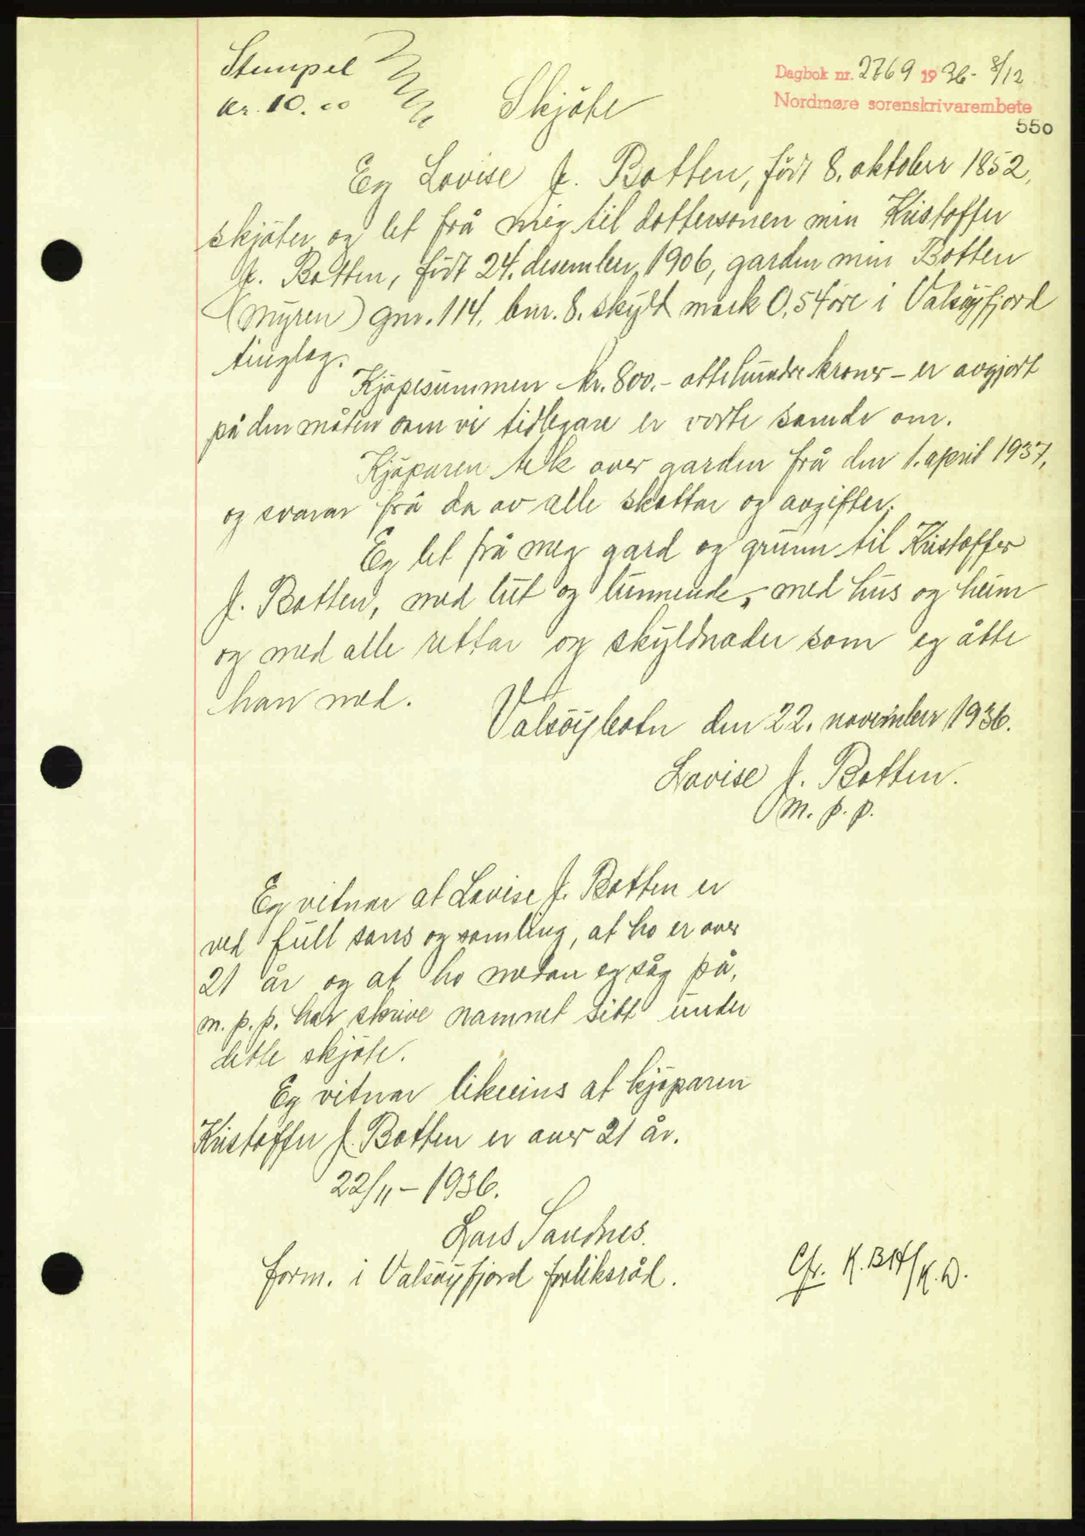 Stempel
kr. 10.00
Skjöte
Dagbok nr. 2769 1936 - 8/12
Nordmøre sorenskrivarembete
550
Eg Lovise J. Botten, född 8. oktober 1852,
skjöter og let frå meg til dottersonen min Kristoffer
J. Botten, födt 24. desember 1906, garden min Botten
(Myren) gnr. 114, bnr. 8. skyld mark 0,54 öre i Valsöyfjord
tinglag.
Kjöpesummen kr. 800.- ottehundre kroner - er avgjort
på den måten som vi tidlegare er vorte samde om.
Kjöparen tek over garden frå den 1. april 1937,
og svarar frå da av alle skattar og avgifter.
Eg let frå meg gard og grunn til Kristoffer
J. Botten, med lut og lunnende, med hus og heim
og med alle rettar og skyldnader som eg åtte
han med.
Valsöybotn den 22. november 1936.
Lovise J. Botten.
m. p. p.
Eg vitnar at Lovise J. Botten er
ved full sans og samling, at ho er over
21 år og at ho medan eg såg på,
m. p. p. har skrive namnet sitt under
dette skjöte.
Eg vitnar likeeins at kjöparen
Kristoffer J. Botten er over 21 år.
22/11 - 1936.
Lars Sandnes.
form. i Valsöyfjord forliksråd.
Cfr. K. BH/K.D.